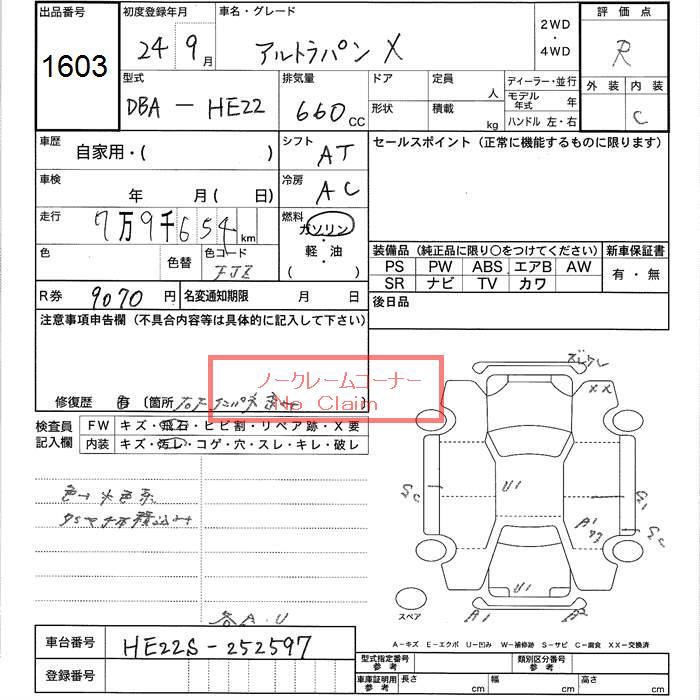 出品番号
1603
初度登録年月
24 9月
車名・グレード
アルトラパン X
2WD
・
4WD
評価点
R
外装 内装
C
型式
DBA - HE22
排気量
660 CC
ドア
形状
定員
人
積載
kg
ディーラー・並行
モデル年式 年
ハンドル 左・右
車歴
自家用・( )
シフト
AT
車検
年 月( 日)
冷房
AC
走行
7万9千654km
燃料
ガソリン
・
軽・油
( )
色
色替
色コード
R券
9070円
名変通知期限 月 日
セールスポイント(正常に機能するものに限ります)
装備品(純正品に限り〇をつけてください)
PS PW ABS エアB AW
SR ナビ TV カワ
新車保証書
有・無
後日品
注意事項申告欄(不具合内容等は具体的に記入して下さい)
ノークレームコーナー
No Claim
修復歴 有 〔箇所
検査員記入欄
FW キズ・飛石・ヒビ割・リペア跡・X要
内装 キズ・汚レ・コゲ・穴・スレ・キレ・破レ
色→水色系
各A.U
XX
U1
A1
U1
A1
A2
スペア
A-キズ E-エクボ U-凹み W-補修跡 S-サビ C-腐食 XX-交換済
車台番号
HE22S-252597
登録番号
型式指定番号参考
類別区分番号参考
車庫証明用参考
長さ cm
幅 cm
高さ cm